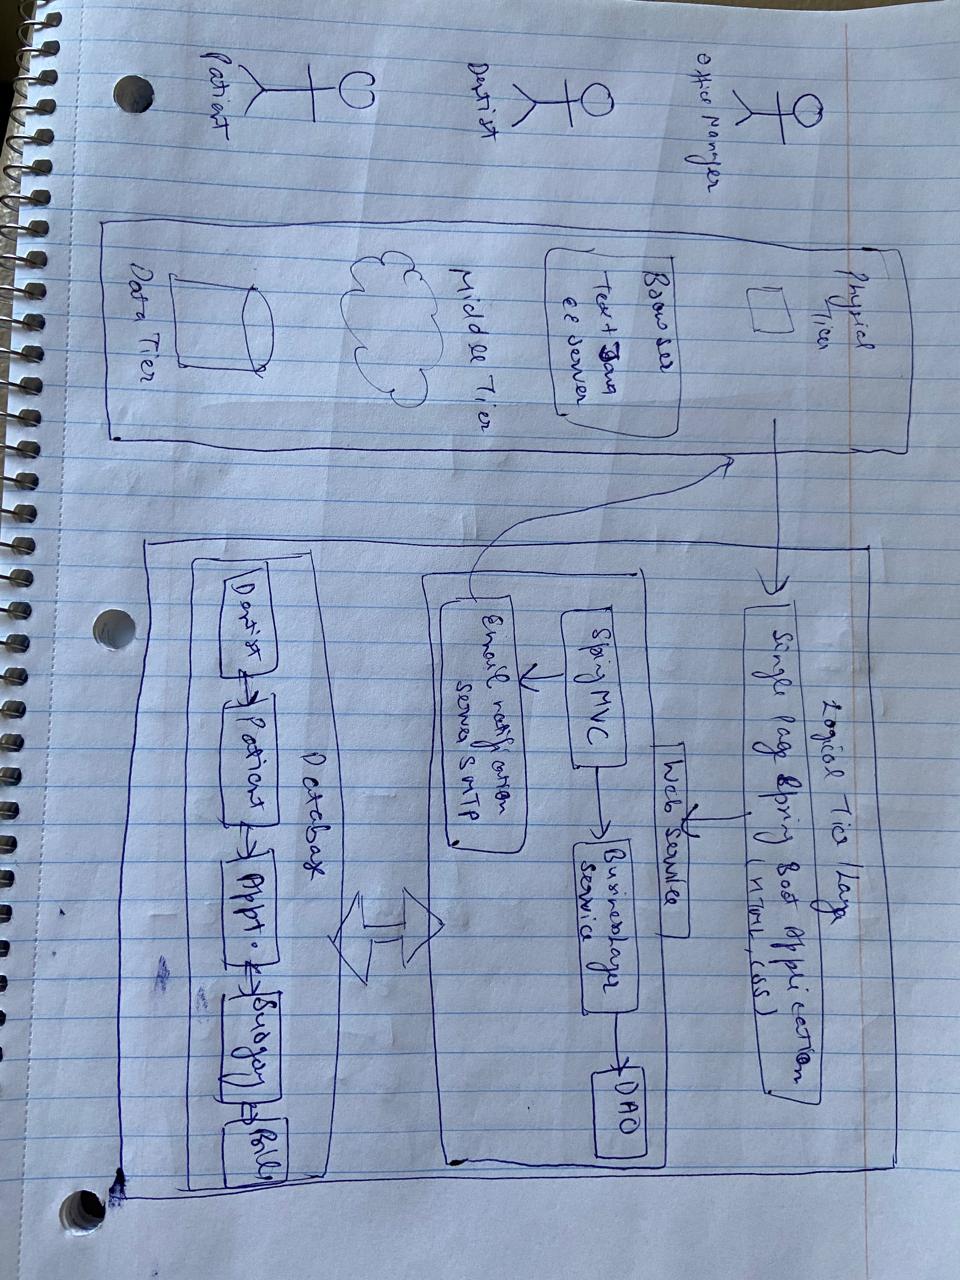 Office Manager
Dentist
Patient
Physical
Tier
Browser
Test + Java
EE Server
Middle Tier
Data Tier
Logical Tier / Layer
Single Page Spring Boot Application
(HTML, CSS)
Web Service
Spring MVC
Business Layer
Service
DAO
Email notification
Server SMTP
Database
Dentist
Patient
Appt.
Surgery
Bill